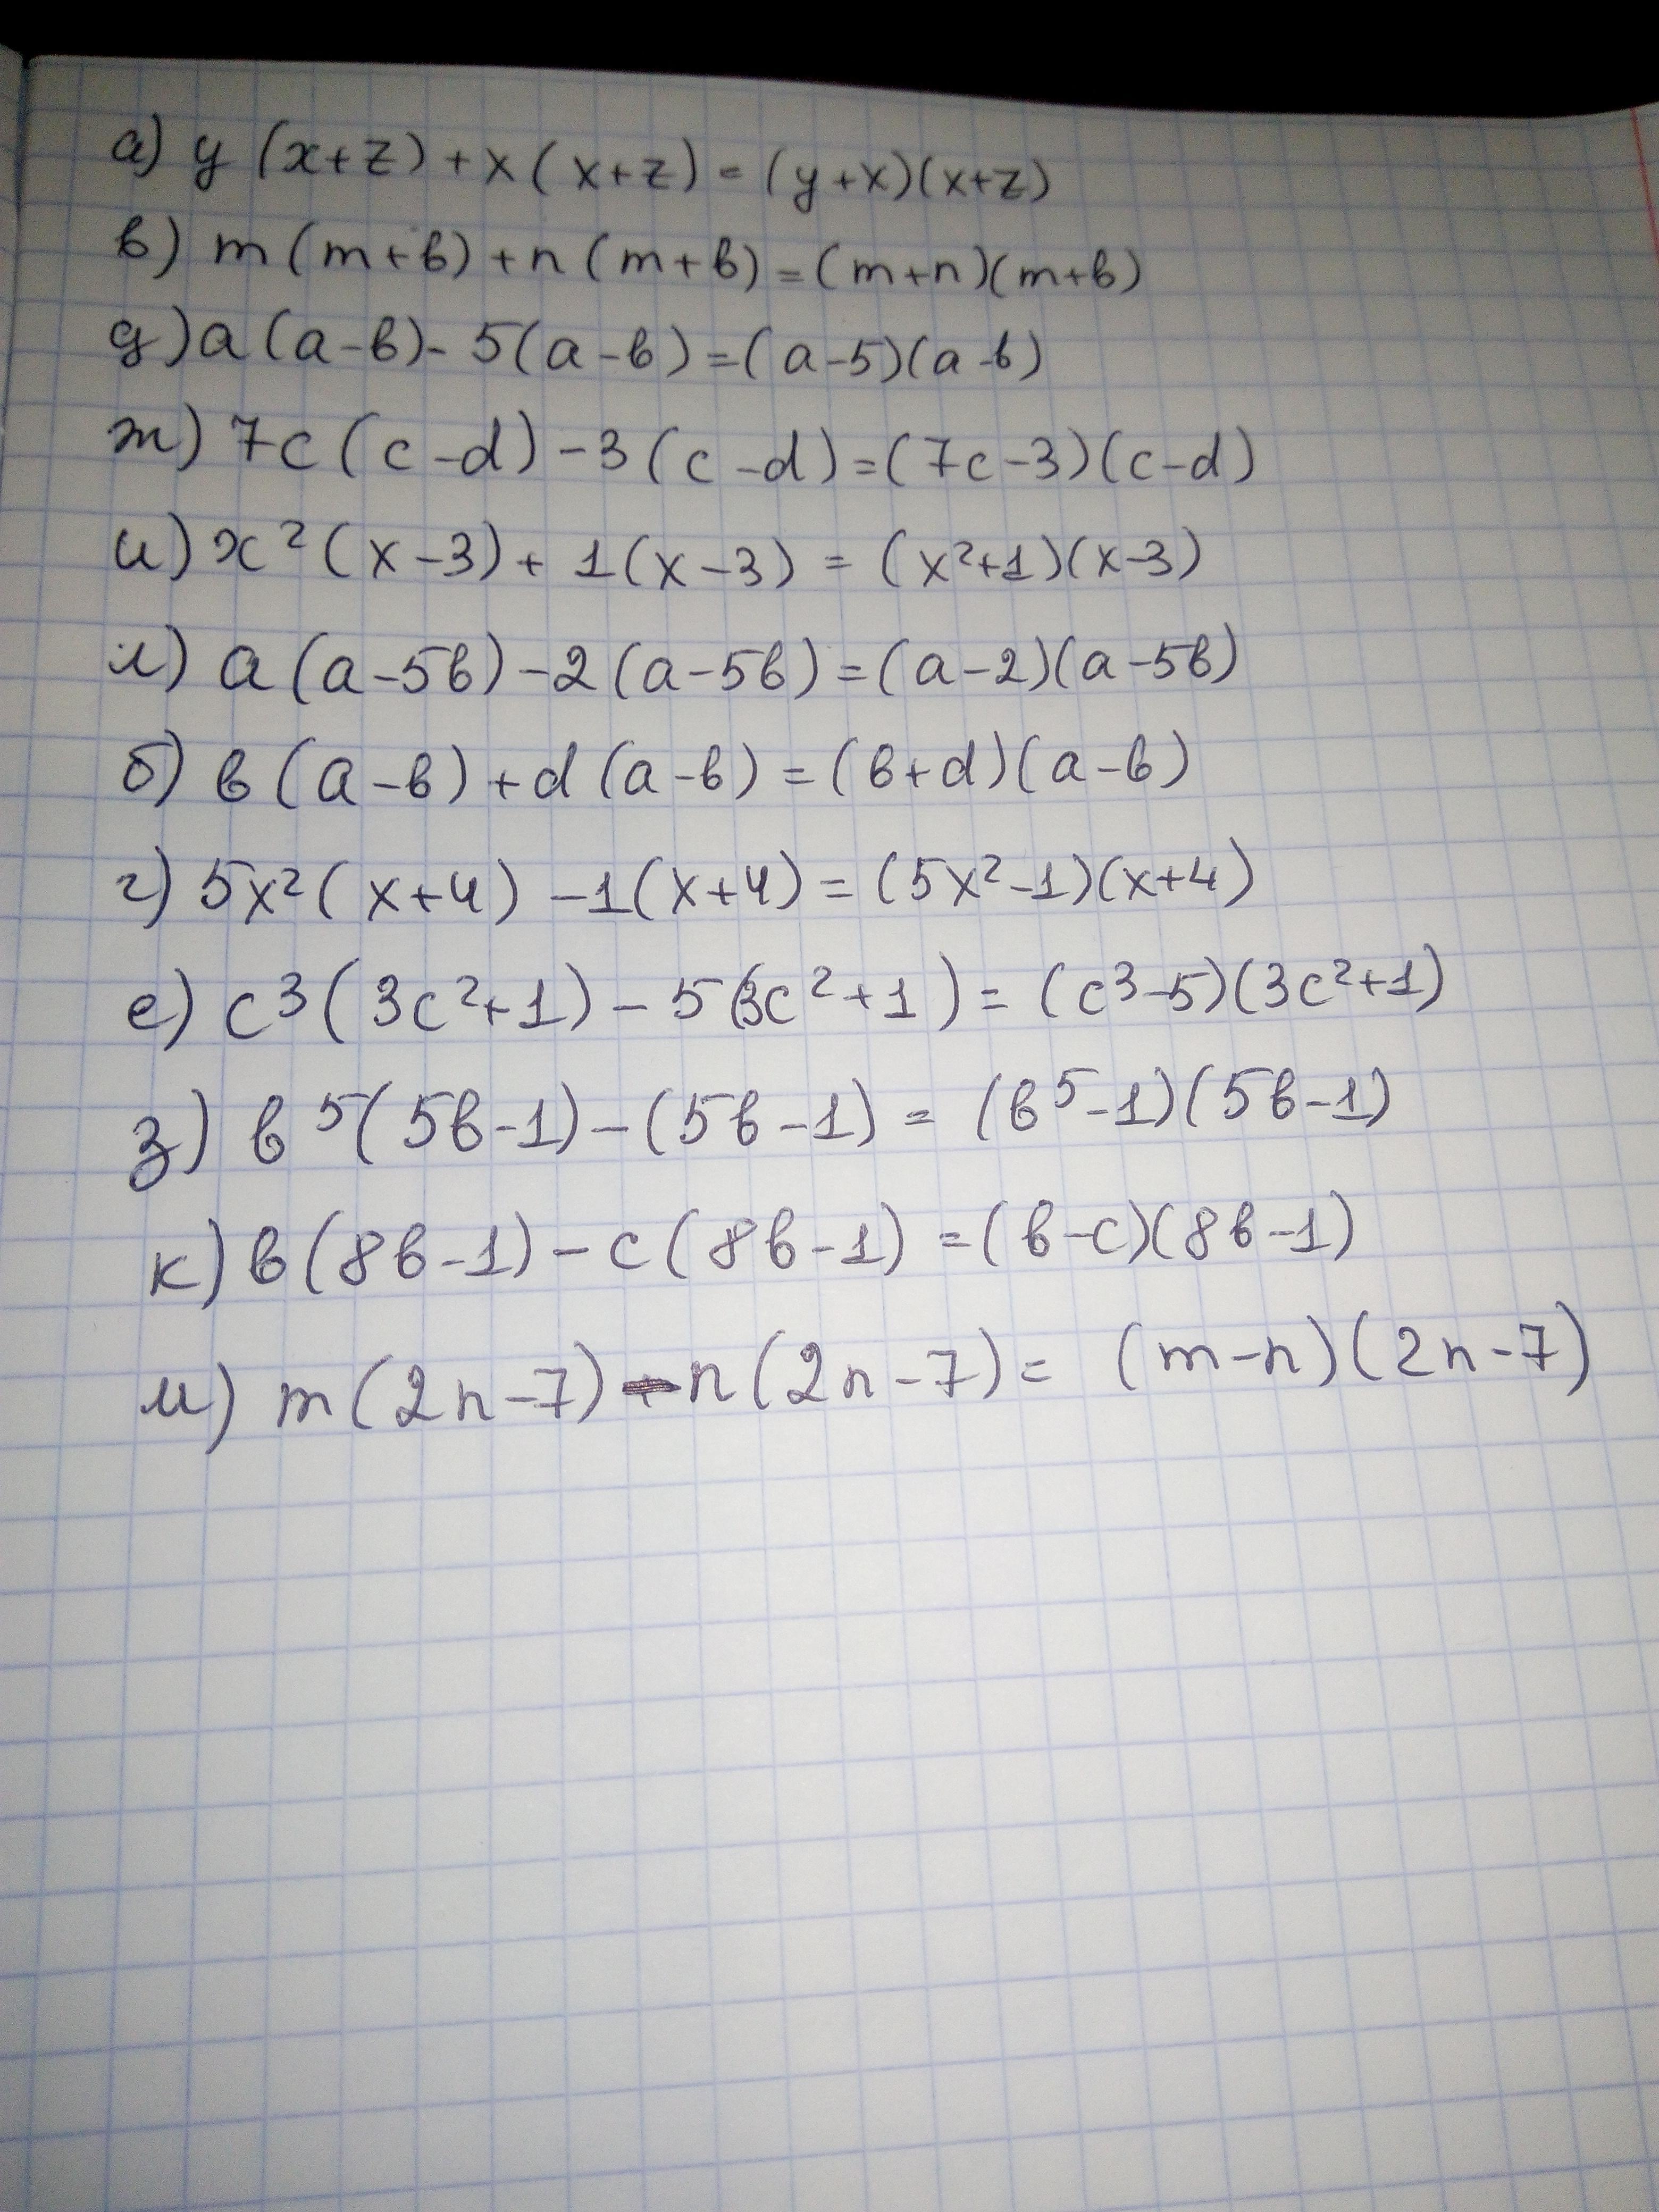 а) y (x+z) + x (x+z) = (y+x)(x+z)
в) m (m+b) + n (m+b) = (m+n)(m+b)
д) a (a-b) - 5(a-b) = (a-5)(a-b)
ж) 7c (c-d) - 3 (c-d) = (7c-3)(c-d)
и) x² (x-3) + 1(x-3) = (x²+1)(x-3)
л) a (a-5b) - 2 (a-5b) = (a-2)(a-5b)
б) b (a-b) + d (a-b) = (b+d)(a-b)
г) 5x² (x+4) - 1(x+4) = (5x²-1)(x+4)
е) c³ (3c²+1) - 5(3c²+1) = (c³-5)(3c²+1)
з) b⁵(5b-1) - (5b-1) = (b⁵-1)(5b-1)
к) b(8b-1) - c (8b-1) = (b-c)(8b-1)
м) m (2n-7) - n (2n-7) = (m-n)(2n-7)